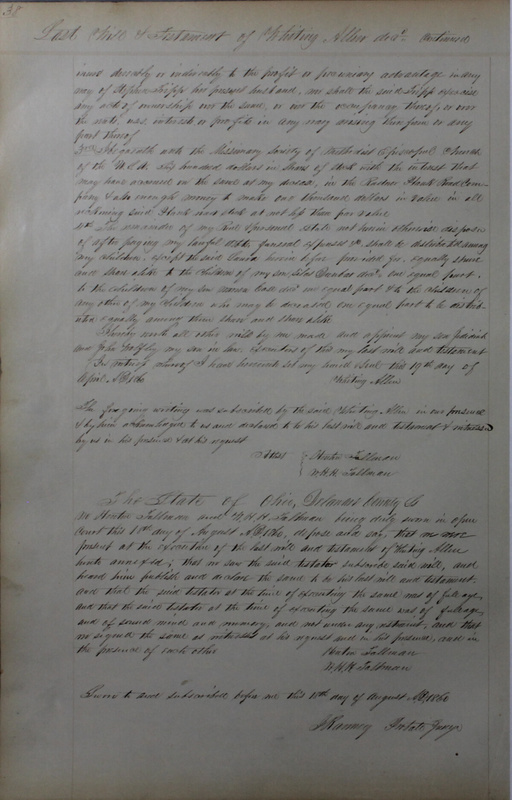 38
Last Will & Testament of Whiting Allen decd. Continued
directly or indirectly to the profit or pecuniary advantage in any
way of Stephen Tripp her present husband, nor shall the said Tripp exercise
any act of ownership over the same, or over the thereof or over
the interest or profits in any way arising therefrom or any
part thereof
I bequeath unto the Missionary Society of Methodist Episcopal Church
of the U.S.A. hundred dollars in Shares of Stock with the interest that
may have accrued on the same at my decease, in the Plank Road Com-
pany & also enough money to make one thousand dollars in value in all
reckoning said Plank road stock at not less than par value
4th The remainder of my Real & personal estate not herein otherwise disposed
of after paying my lawful debts funeral expenses &c shall be distributed among
my children, except the said herein before provided for, equally share
and share alike to the children of my son decd. one equal part.
to the children of my son decd one equal part & to the children of
any other of my children who may be deceased one equal part to be distrib-
uted equally among them share and share alike
I hereby revoke all other wills by me made and appoint my son
and John my son in law, executors of this my last will and testament
In witness whereof I have hereunto set my hand & seal this 19th day of
April AD 1860 Whiting Allen
The foregoing writing was subscribed by the said Whiting Allen in our presence
& by him acknowledged to us and declared to be his last will and testament & witnessed
by us in his presence & at his request
Attest Tallman
W.H.H. Tallman
The State of Ohio, Delaware County SS
We Tallman and W.H.H. Tallman being duly sworn in open
Court this 10th day of August AD 1860, depose and say, that we were
present at the execution of the last will and testament of Whiting Allen
hereto annexed; that we saw the said testator subscribe said will, and
heard him publish and declare the same to be his last will and testament.
and that the said testator at the time of executing the same was of full age,
and that the said testator at the time of executing the same was of full age
and of sound mind and memory, and not under any restraint, and that
we signed the same as witnesses at his request and in his presence, and in
the presence of each other Tallman
W.H.H. Tallman
Sworn to and Subscribed before me this 10th day of August AD 1860
Ranney Probate Judge